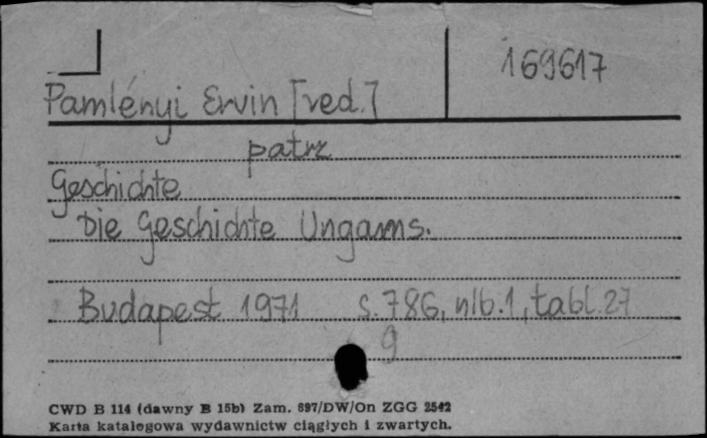 169617
Pamlényi Ervin [red.]
patrz
Geschichte
Die Geschichte Ungarns.
Budapest 1971 s. 786, nlb. 1, tabl. 27
9
CWD B 114 (dawny B 15b) Zam. 697/DW/On ZGG 2542
Karta katalogowa wydawnictw ciągłych i zwartych.